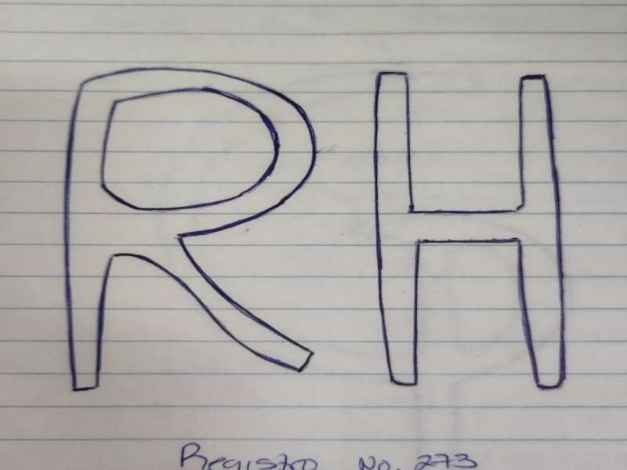 RH
Registro No. 273